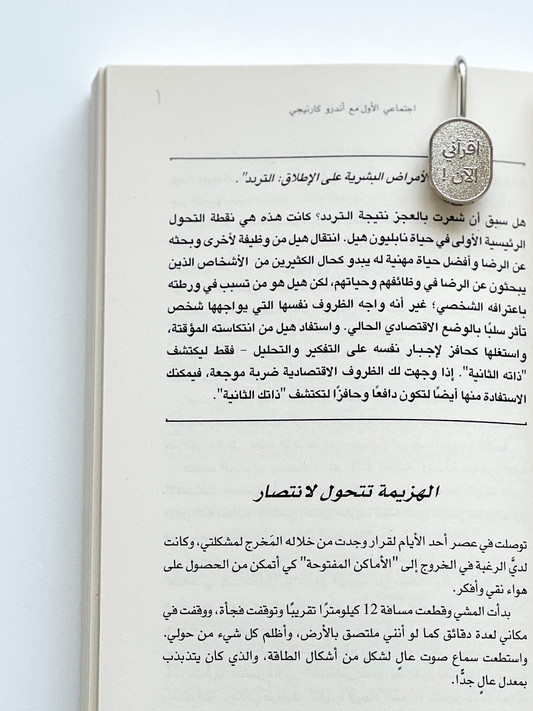 اجتماعي الأول مع أندرو كارنيجي
اقرأني
الآن !
لأمراض البشرية على الإطلاق: التردد".
هل سبق أن شعرت بالعجز نتيجة التردد؟ كانت هذه هي نقطة التحول
الرئيسية الأولى في حياة نابليون هيل. انتقال هيل من وظيفة لأخرى وبحثه
عن الرضا وأفضل حياة مهنية له يبدو كحال الكثيرين من الأشخاص الذين
يبحثون عن الرضا في وظائفهم وحياتهم، لكن هيل هو من تسبب في ورطته
باعترافه الشخصي؛ غير أنه واجه الظروف نفسها التي يواجهها شخص
تأثر سلبًا بالوضع الاقتصادي الحالي. واستفاد هيل من انتكاسته المؤقتة،
واستغلها كحافز لإجبار نفسه على التفكير والتحليل – فقط ليكتشف
"ذاته الثانية". إذا وجهت لك الظروف الاقتصادية ضربة موجعة، فيمكنك
الاستفادة منها أيضًا لتكون دافعًا وحافزًا لتكتشف "ذاتك الثانية".
الهزيمة تتحول لانتصار
توصلت في عصر أحد الأيام لقرار وجدت من خلاله المَخرج لمشكلتي، وكانت
لديَّ الرغبة في الخروج إلى "الأماكن المفتوحة" كي أتمكن من الحصول على
هواء نقي وأفكر.
بدأت المشي وقطعت مسافة 12 كيلومترًا تقريبًا وتوقفت فجأة، ووقفت في
مكاني لعدة دقائق كما لو أنني ملتصق بالأرض، وأظلم كل شيء من حولي.
واستطعت سماع صوت عالٍ لشكل من أشكال الطاقة، والذي كان يتذبذب
بمعدل عالٍ جدًّا.